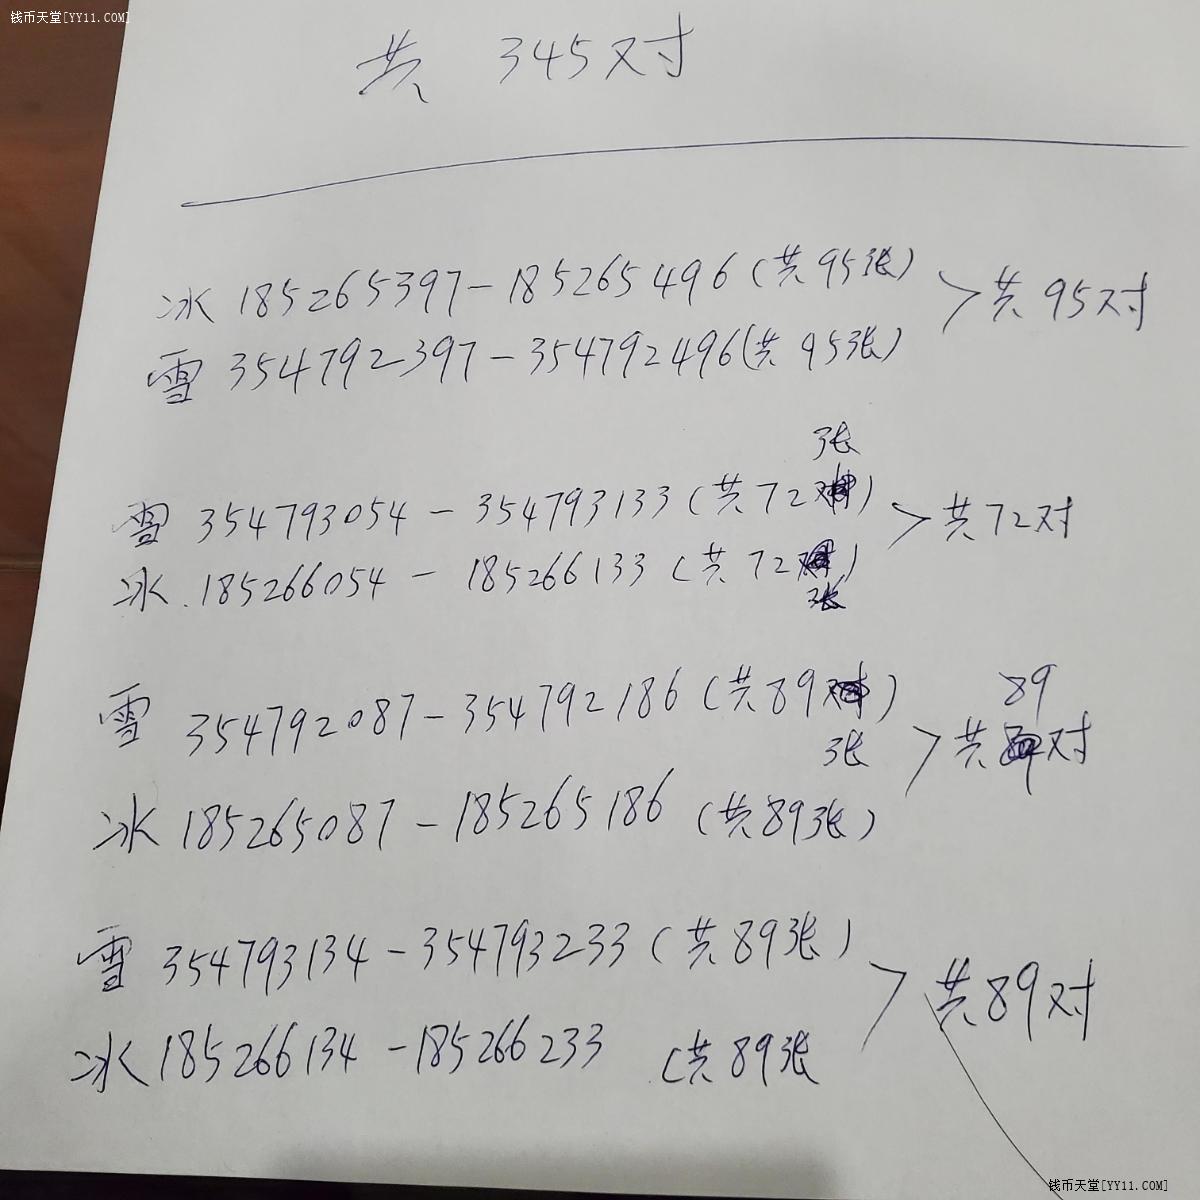 钱币天堂[YY11.COM]
共 345对
冰 185265397-185265496(共95张)
雪 354792397-354792496(共95张)
>共95对
张
雪 354793054-354793133(共72)
冰.185266054-185266133(共72)
张
>共72对
雪 354792087-354792186(共89)
张
冰 185265087-185265186(共89张)
89
>共对
雪 354793134-354793233(共89张)
冰 185266134-185266233 (共89张
>共89对
钱币天堂[YY11.COM]